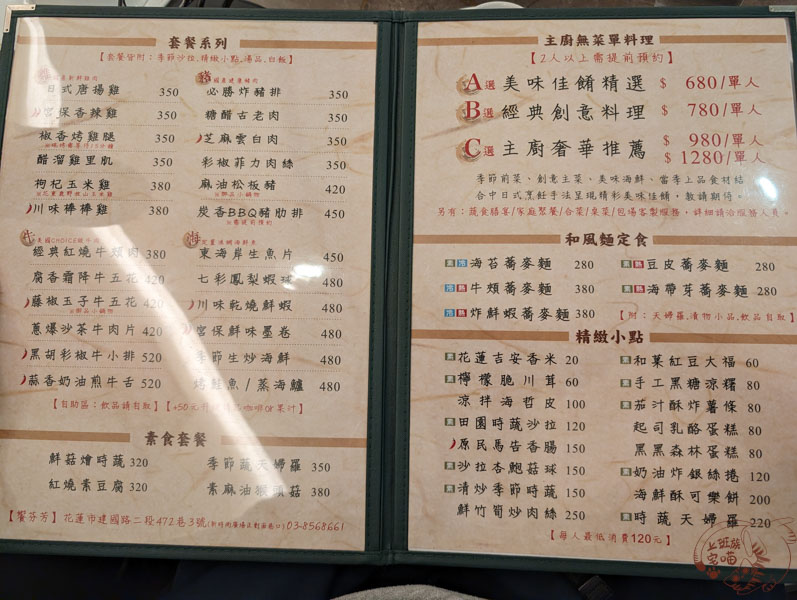 套餐系列
【套餐皆附：季節沙拉,精緻小點,湯品,白飯】
雞
國產新鮮雞肉
日式唐揚雞 350
宮保香辣雞 350
椒香烤雞腿 350
醋溜雞里肌 350
枸杞玉米雞 380
川味棒棒雞 380
豬
國產健康豬肉
必勝炸豬排 350
糖醋古老肉 350
芝麻雲白肉 350
彩椒菲力肉絲 350
麻油松板豬 420
※御品小鍋物
炭香BBQ豬肋排 450
※需提前預約
牛
美國CHOICE級牛肉
經典紅燒牛頰肉 380
腐香霜降牛五花 420
藤椒玉子牛五花 420
※御品小鍋物
蔥爆沙茶牛肉片 420
黑胡彩椒牛小排 520
蒜香奶油煎牛舌 520
海
東海岸生魚片 450
七彩鳳梨蝦球 480
川味乾燒鮮蝦 480
宮保鮮味墨卷 480
季節生炒海鮮 480
烤鮭魚/蒸海鱸 480
【自助區：飲品請自取】
素食套餐
鮮菇燴時蔬 320
紅燒素豆腐 320
季節蔬天婦羅 350
素麻油猴頭菇 380
【饗芬芳】花蓮市建國路二段472巷3號 03-8568661
主廚無菜單料理
【2人以上需提前預約】
A選 美味佳餚精選 $ 680/單人
B選 經典創意料理 $ 780/單人
C選 主廚奢華推薦 $ 980/單人
$ 1280/單人
季節前菜、創意主菜、美味海鮮、當季上品食材結
合中日式烹飪手法呈現精彩美味佳餚，敬請期待。
另有：蔬食膳宴/家庭聚餐/合菜/桌菜/包場客製服務，詳細請洽服務人員。
和風麵定食
素 冷 海苔蕎麥麵 280
冷 熱 牛頰蕎麥麵 380
冷 熱 炸鮮蝦蕎麥麵 380
素 熱 豆皮蕎麥麵 280
素 熱 海帶芽蕎麥麵 280
【附：天婦羅,漬物小品,飲品自取】
精緻小點
素 花蓮吉安香米 20
素 檸檬脆川茸 60
涼拌海哲皮 100
素 田園時蔬沙拉 120
原民馬告香腸 150
素 沙拉杏鮑菇球 150
素 清炒季節時蔬 150
鮮竹筍炒肉絲 250
素 和菓紅豆大福 60
素 手工黑糖涼糬 80
素 茄汁酥炸薯條 80
起司乳酪蛋糕 80
黑黑森林蛋糕 80
素 奶油炸銀絲捲 120
海鮮酥可樂餅 200
素 時蔬天婦羅 220
【每人最低消費120元】
上班族
宅喵